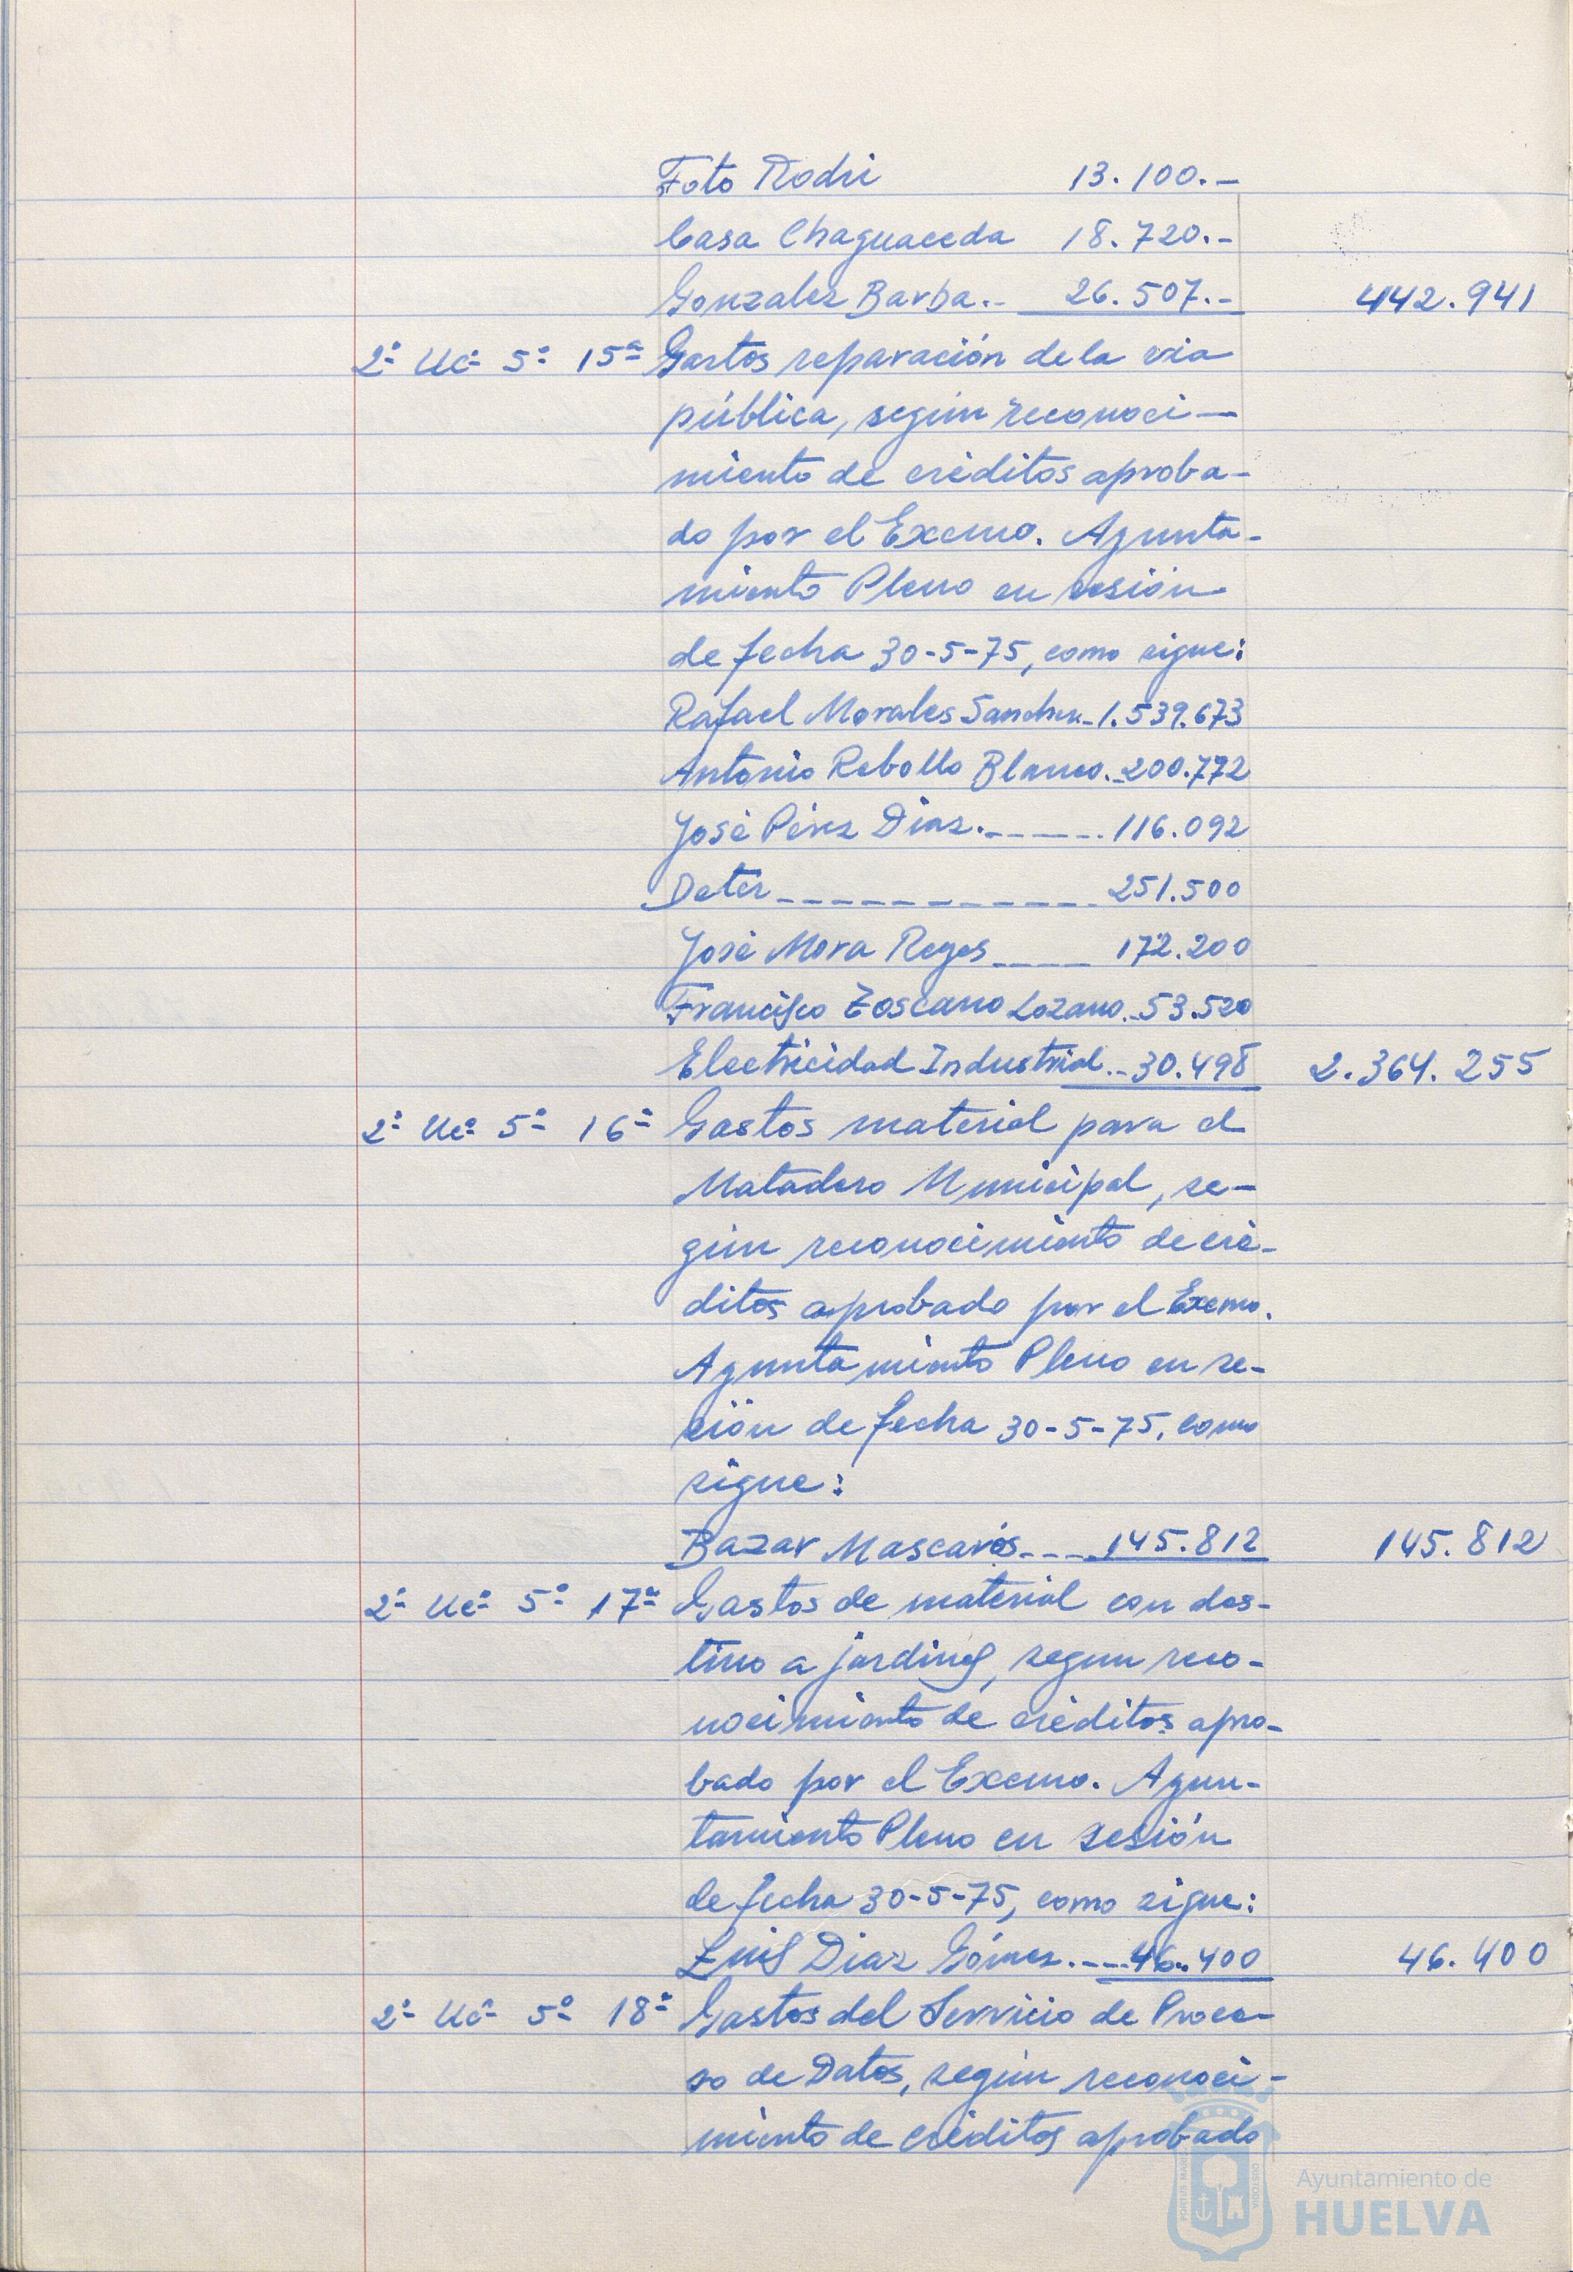 Foto Rodri 13.100.-
Casa Chaguaceda 18.720.-
Gonzalez Barba.- 26.507.- 442.941
2º Uº 5º 15ª Gastos reparación de la via
pública, según reconoci-
miento de créditos aproba-
do por el Excmo. Ayunta-
miento Pleno en sesión
de fecha 30-5-75, como sigue:
Rafael Morales Sanchez.-1.539.673
Antonio Rebollo Blanco.-200.772
José Pérez Diaz.------116.092
Deter------------251.500
José Mora Reyes---- 172.200
Francisco Toscano Lozano.-53.520
Electricidad Industrial.-30.498 2.364.255
2º Uº 5º 16ª Gastos material para el
Matadero Municipal, se-
gún reconocimiento de cré-
ditos aprobado por el Excmo.
Ayuntamiento Pleno en se-
sión de fecha 30-5-75, como
sigue:
Bazar Mascarós----145.812 145.812
2º Uº 5º 17ª Gastos de material con des-
tino a jardines, segun reco-
nocimiento de créditos apro-
bado por el Excmo. Ayun-
tamiento Pleno en sesión
de fecha 30-5-75, como sigue:
Luis Diaz Gómez.---46.400 46.400
2º Uº 5º 18ª Gastos del Servicio de Proce-
so de Datos, según reconoci-
miento de créditos aprobado
Ayuntamiento de
HUELVA